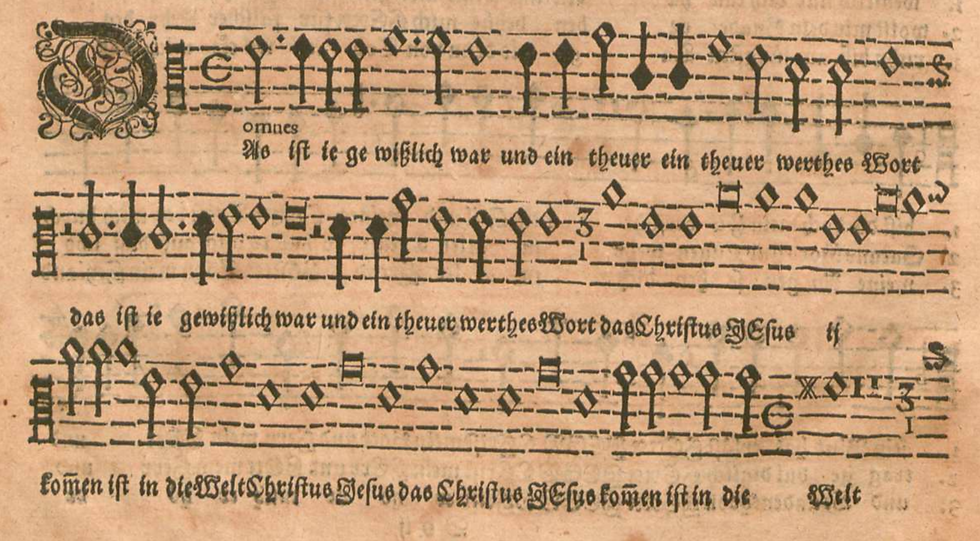 omnes
DAs ist ie ge wißlich war und ein theuer ein theuer werthes Wort
das ist ie gewißlich war und ein theuer werthes Wort das Christus JEsus ij
kom̃en ist in die Welt Christus Jesus das Christus JEsus kom̃en ist in die Welt